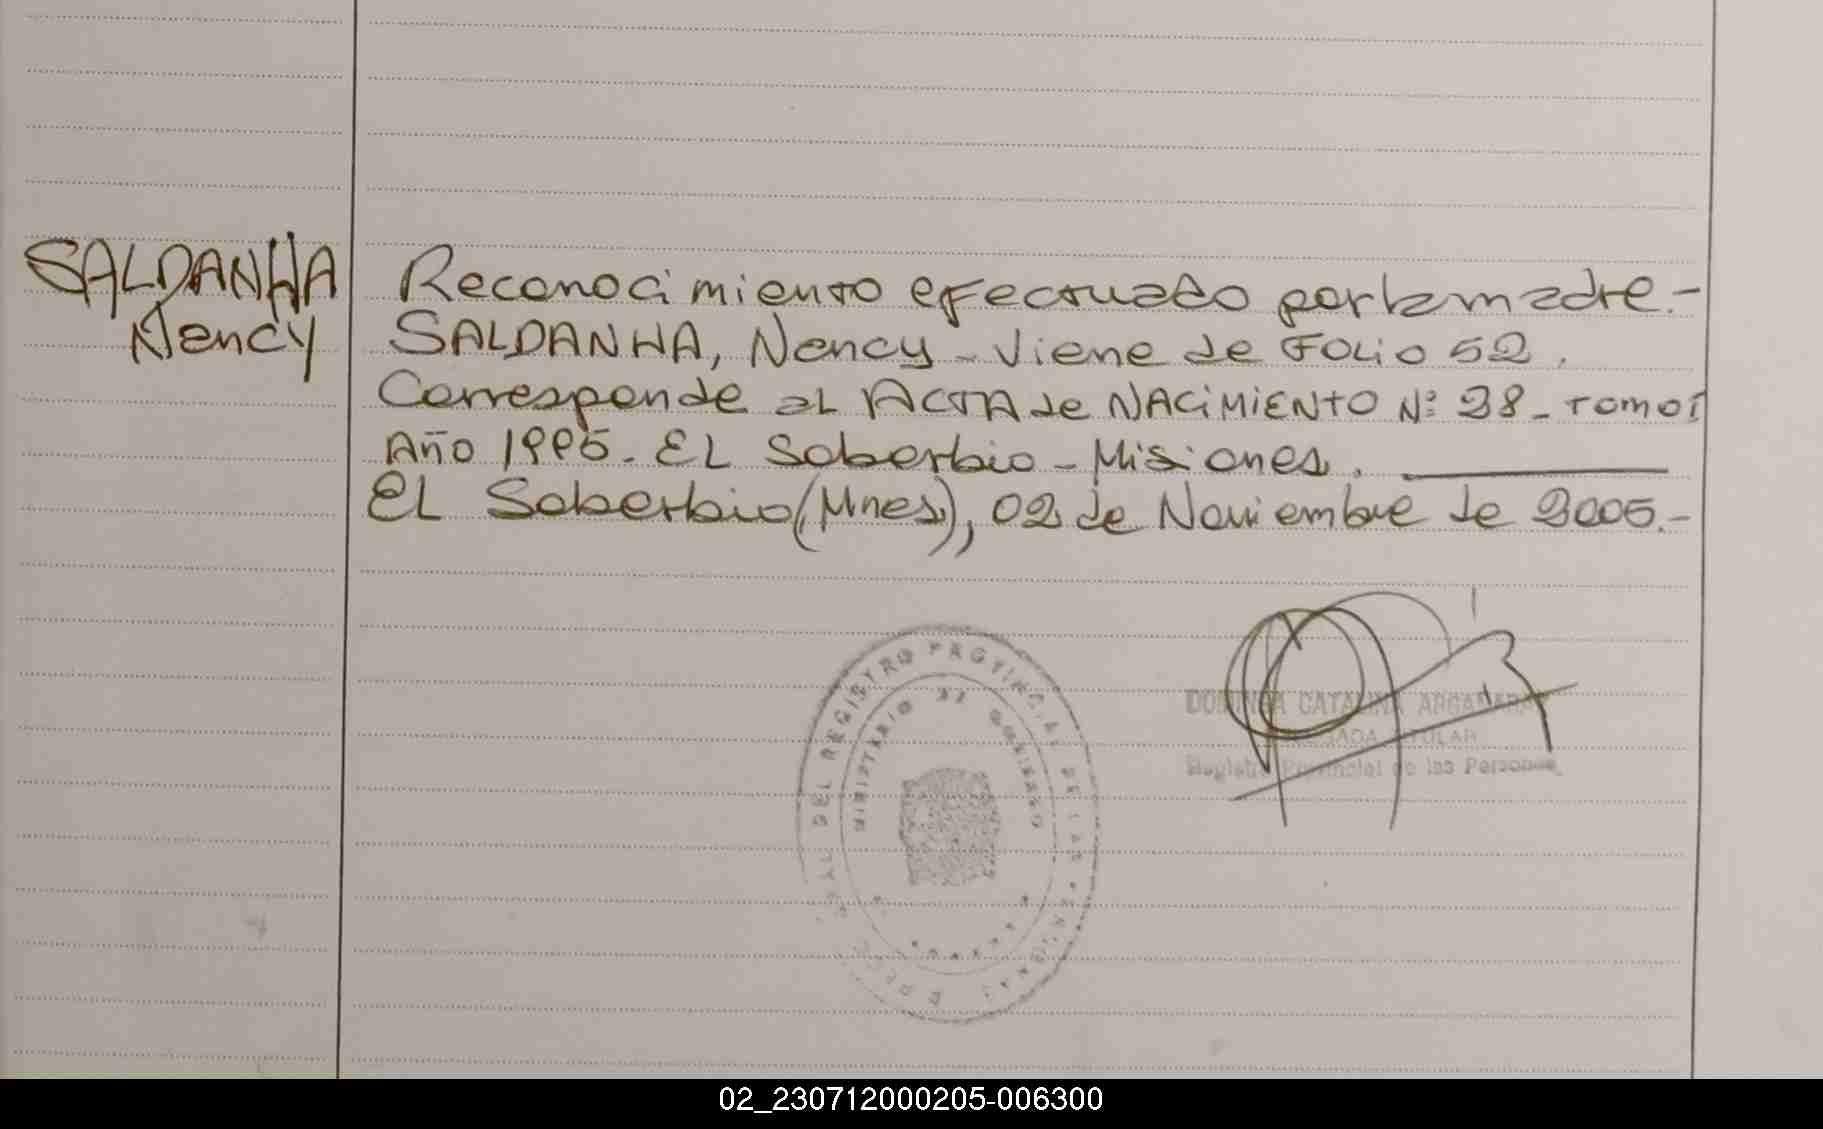 SALDANHA
Nency
Reconocimiento efectuado por la madre.-
SALDANHA, Nency - Viene de Folio 52.
Corresponde al ACTA de NACIMIENTO Nº 28 - Tomo I
Año 1995. EL Soberbio - Misiones.
EL Soberbio (Mnes), 02 de Noviembre de 2005.-
DEL REGISTRO PROVINCIAL DE LAS PERSONAS
MINISTERIO DE GOBIERNO
CATALINA
TITULAR
Registro Provincial de las Personas
02_230712000205-006300